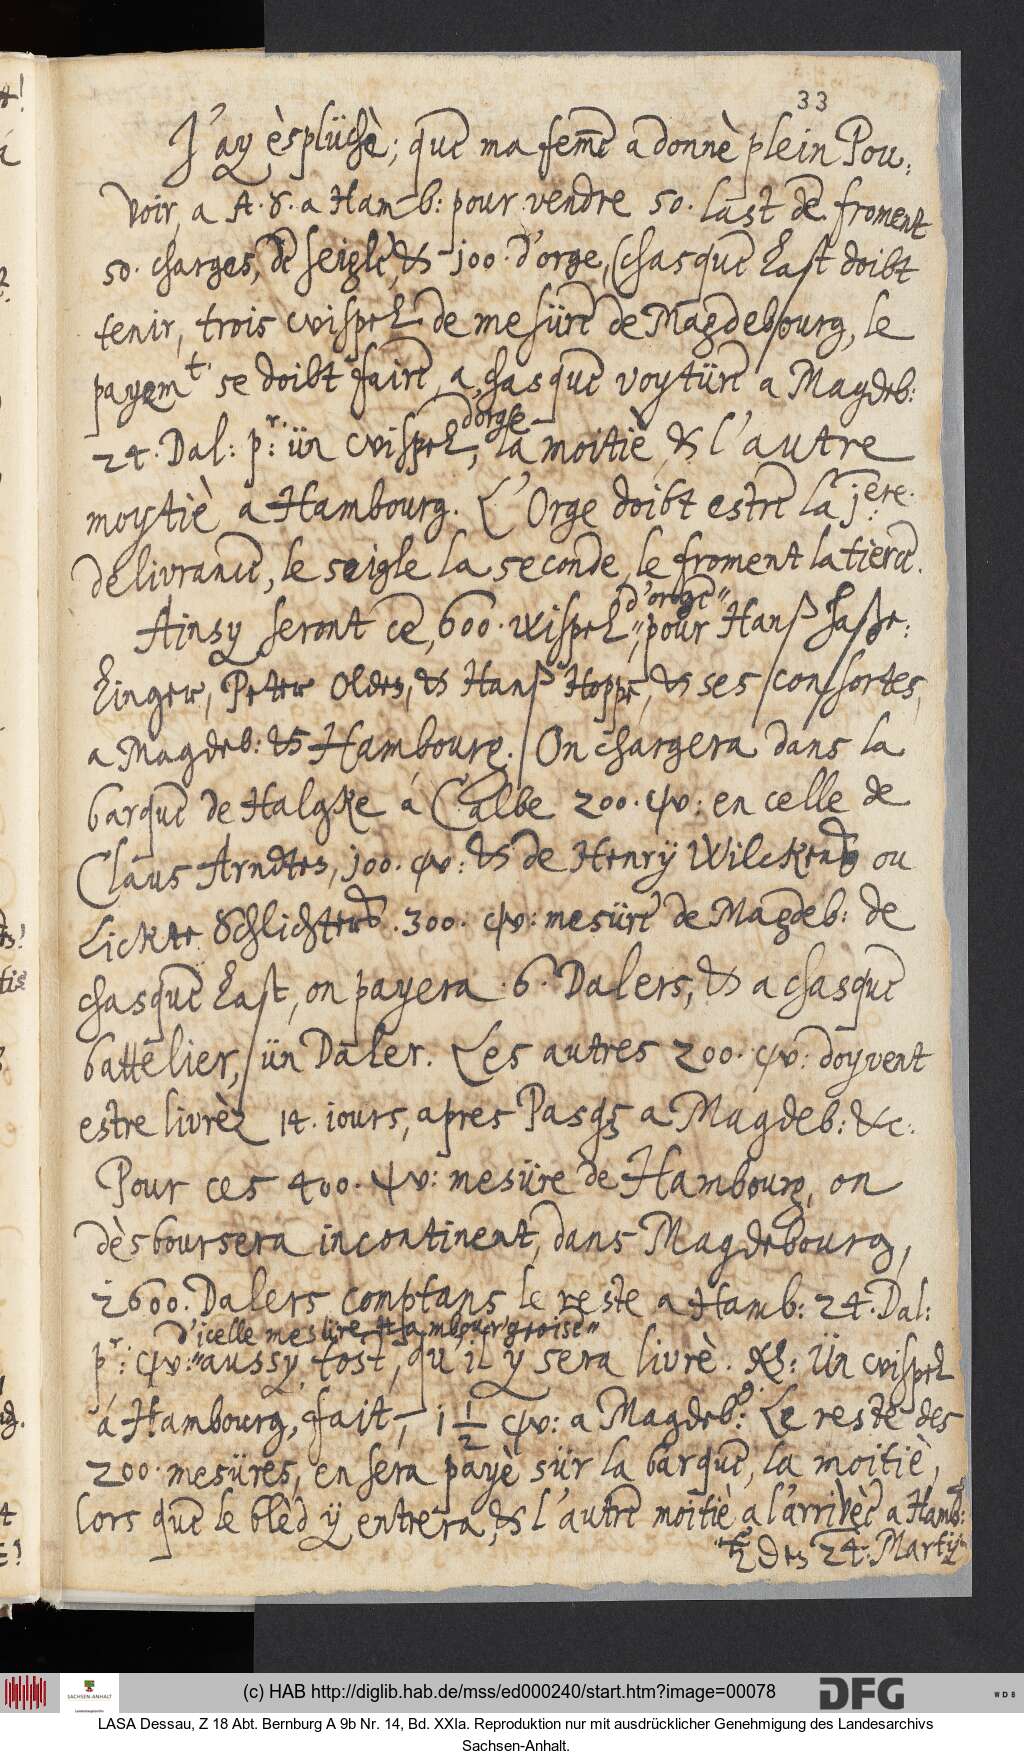 33
J'ay èsplüchè; que ma fem̅e a donnè plein Pou¬
voir, a A. S. a Ham¬b: pour vendre 50. last de froment
50. charges, de seigle, & 100. d'orge, (chasque Last doibt
tenir, trois wispel de mesüre de Magdebourg, le
payem.t se doibt faire a chasque voytüre a Magdeb:
24. Dal: p.r: ün wispel, d'orge la moitiè & l'autre
moytiè a Hambourg. L'Orge doibt estre la 1.ere.
delivrance, le seigle la seconde, le froment la tierce.
Ainsy seront ce, 600. wispel "d'orge" pour Hanß Haße¬
linger, Peter Oldes, & Hanß Hoppe, & ses consortes,
a Magdeb: & Hambourg. On chargera dans la
barque de Halgke á Calbe 200. W: en celle de
Claus Arndtes, 100. W: & de Henry Wilckens ou
Lickte Schlichters. 300. W: mesüre de Magdeb: de
chasque Last, on payera 6. Dalers, & a chasque
battelier, ün Daler. Les autres 200. W: doyvent
estre livrèz 14. iours, apres Pasques a Magdeb: &c.
Pour ces 400. W: mesüre de Hambourg, on
dèsboursera incontinent, dans Magdebourg,
2600. Dalers comptans le reste a Hamb: 24. Dal:
p.r: W: "d'icelle mesüre Hambourgeoise" aussy tost, qu'il y sera livrè. NB: Ün wispel
á Hambourg, fait, 1 1/2 W: a Magdeb: Le reste des
200. mesüres, en sera payè sür la barque, la moitiè,
lors que le blèd ÿ entrera, & l'autre moitiè a l'arrivèe a Hamb:
den 24. Martij
(c) HAB http://diglib.hab.de/mss/ed000240/start.htm?image=00078
SACHSEN-ANHALT
DFG
WDB
LASA Dessau, Z 18 Abt. Bernburg A 9b Nr. 14, Bd. XXIa. Reproduktion nur mit ausdrücklicher Genehmigung des Landesarchivs
Sachsen-Anhalt.